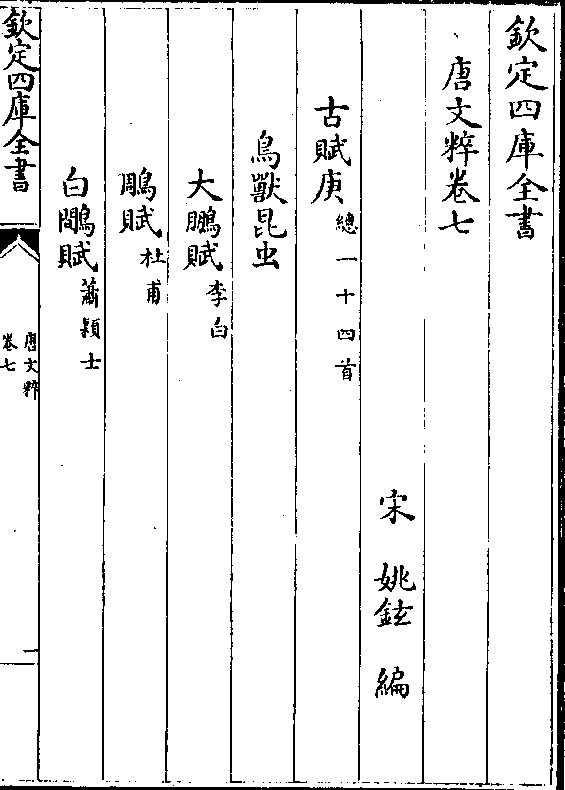 欽定四庫全書
唐文粹卷七
宋 姚鉉 編
古賦庚 總一十四首
鳥獸昆虫
大鵬賦 李白
鵰賦 杜甫
白鷴賦 蕭穎士
欽定四庫全書
唐文粹
卷七
一